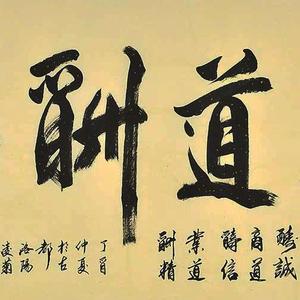 道酬
醻誠
商道
醻信
業道
酬精
丁酉
仲夏
於古
都
洛陽
凌菊